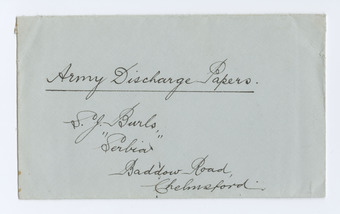 Army Discharge Papers.
S. J. Burls,
"Serbia"
Baddow Road,
Chelmsford.